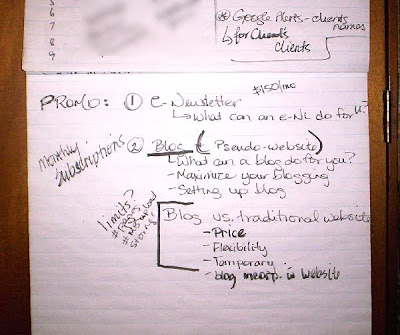 5
6
7
8
9
* Google Alerts - clients names
↳ for Clients' clients
PROMO: ① E-Newsletter
↳ What can an e-NL do for U?
$150/mo
② Blog (Pseudo-website)
↳ What can a blog do for you?
- Maximize your blogging
- Setting up blog
Monthly
Subscriptions
Blog vs. traditional website
- Price
- Flexibility
- Temporary
- blog in website
limits?
# pages
story?